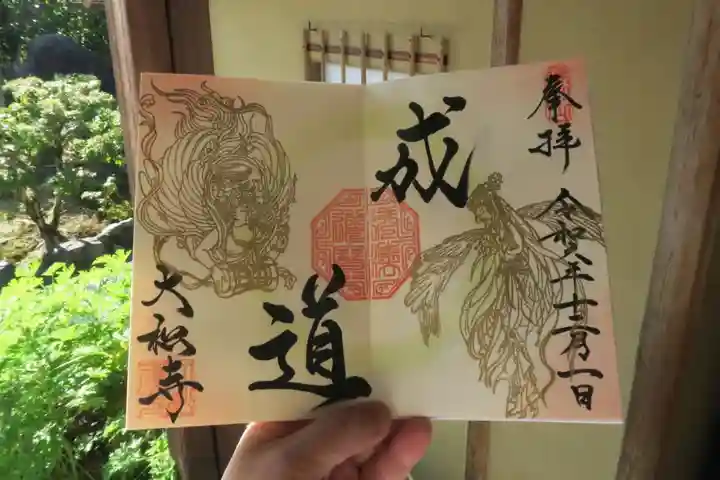 奉拝
令和八年十二月一日
成
道
大松寺